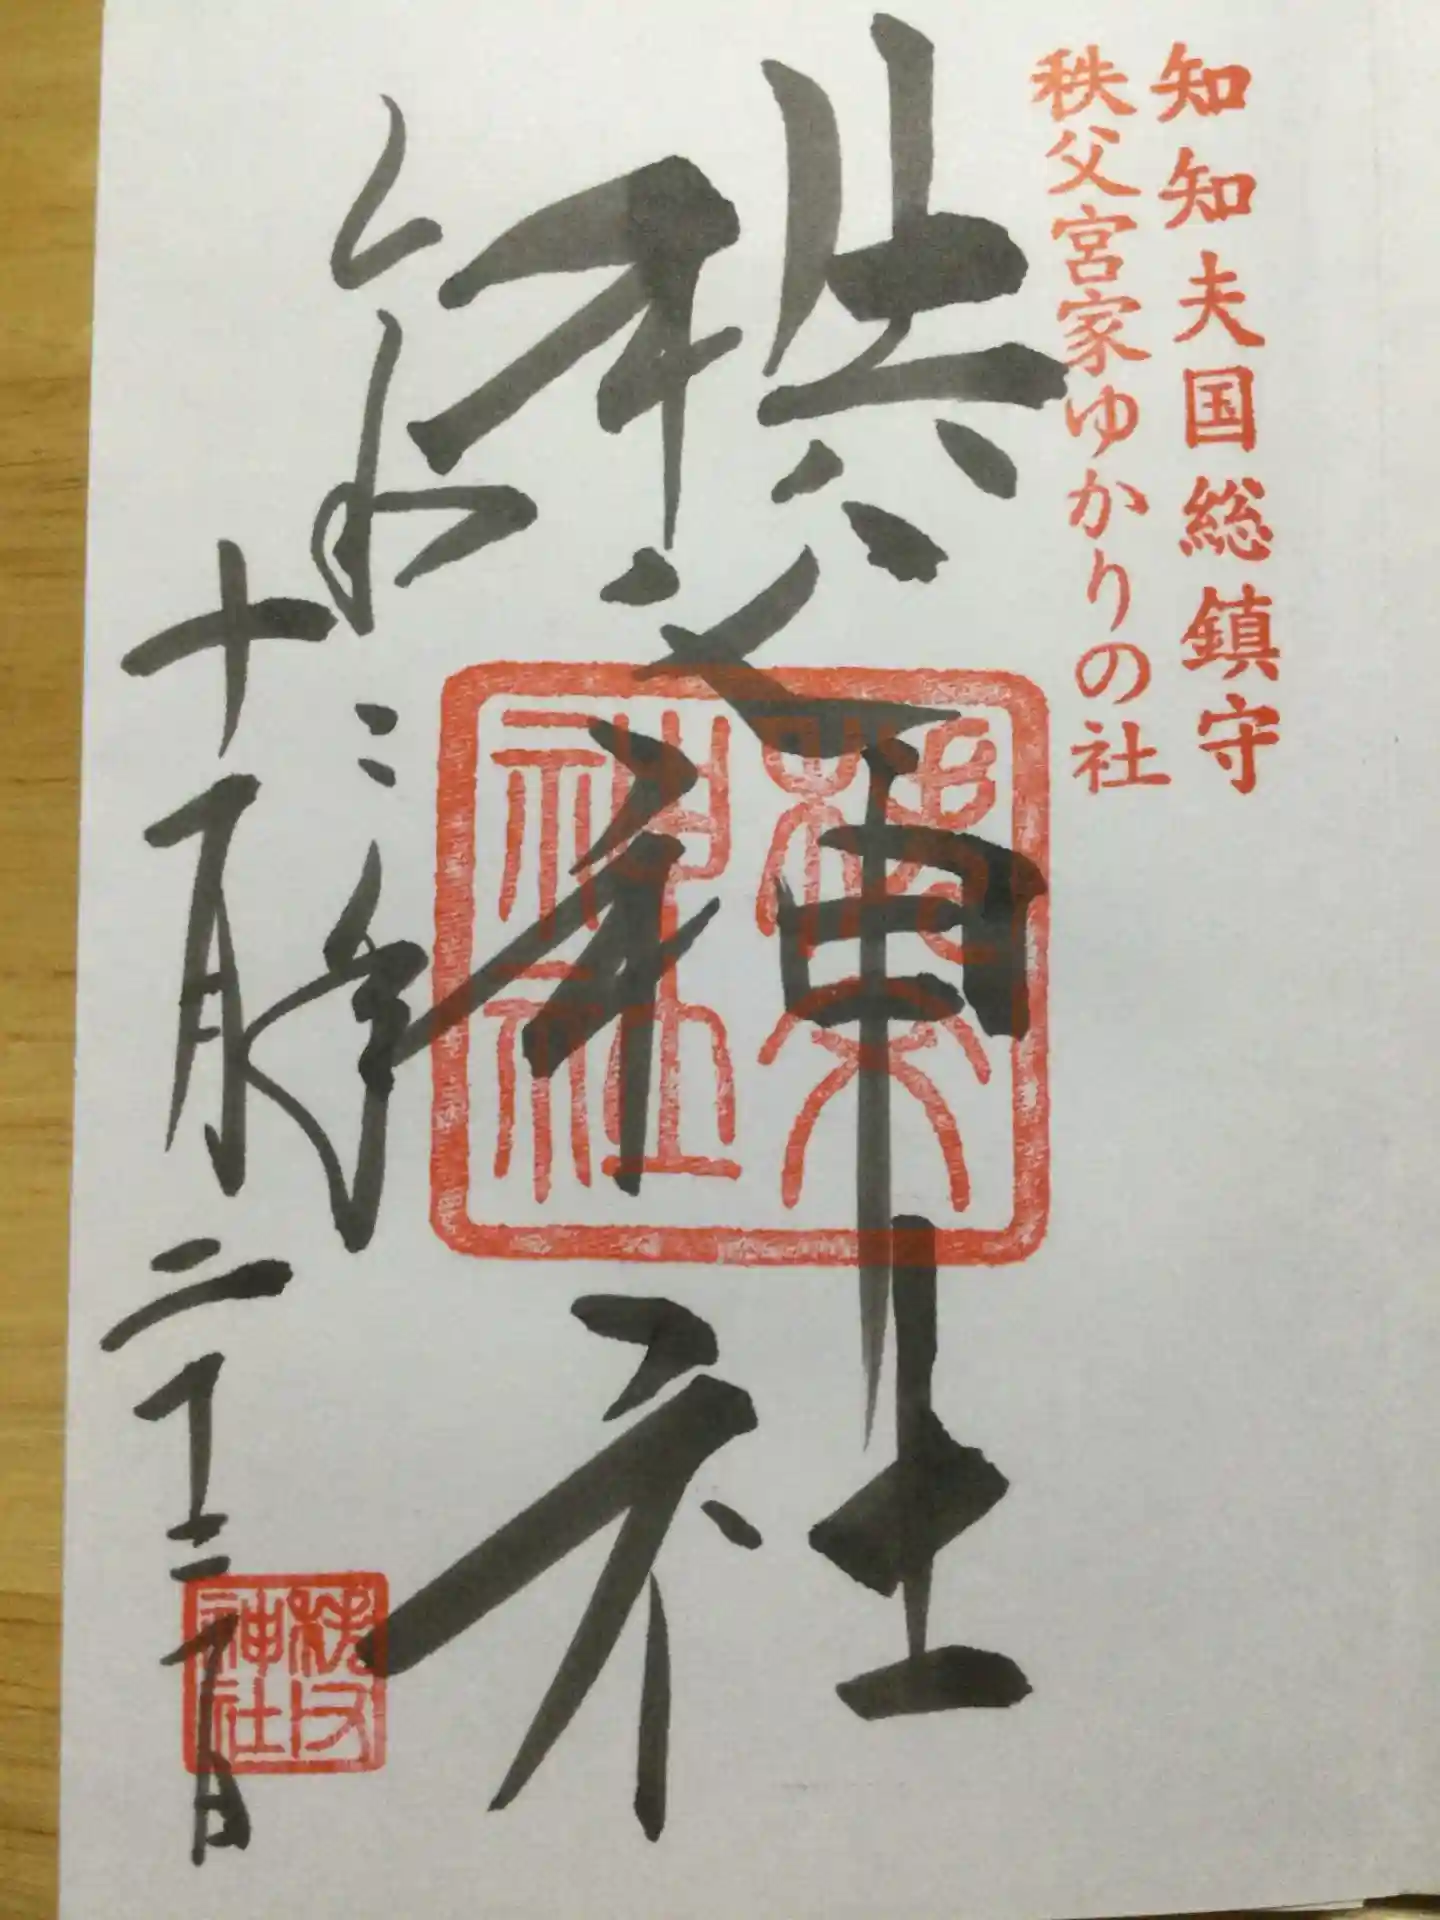 知知夫国総鎮守
秩父宮家ゆかりの社
秩父神社
令和二年
十月二十二日
秩父神社